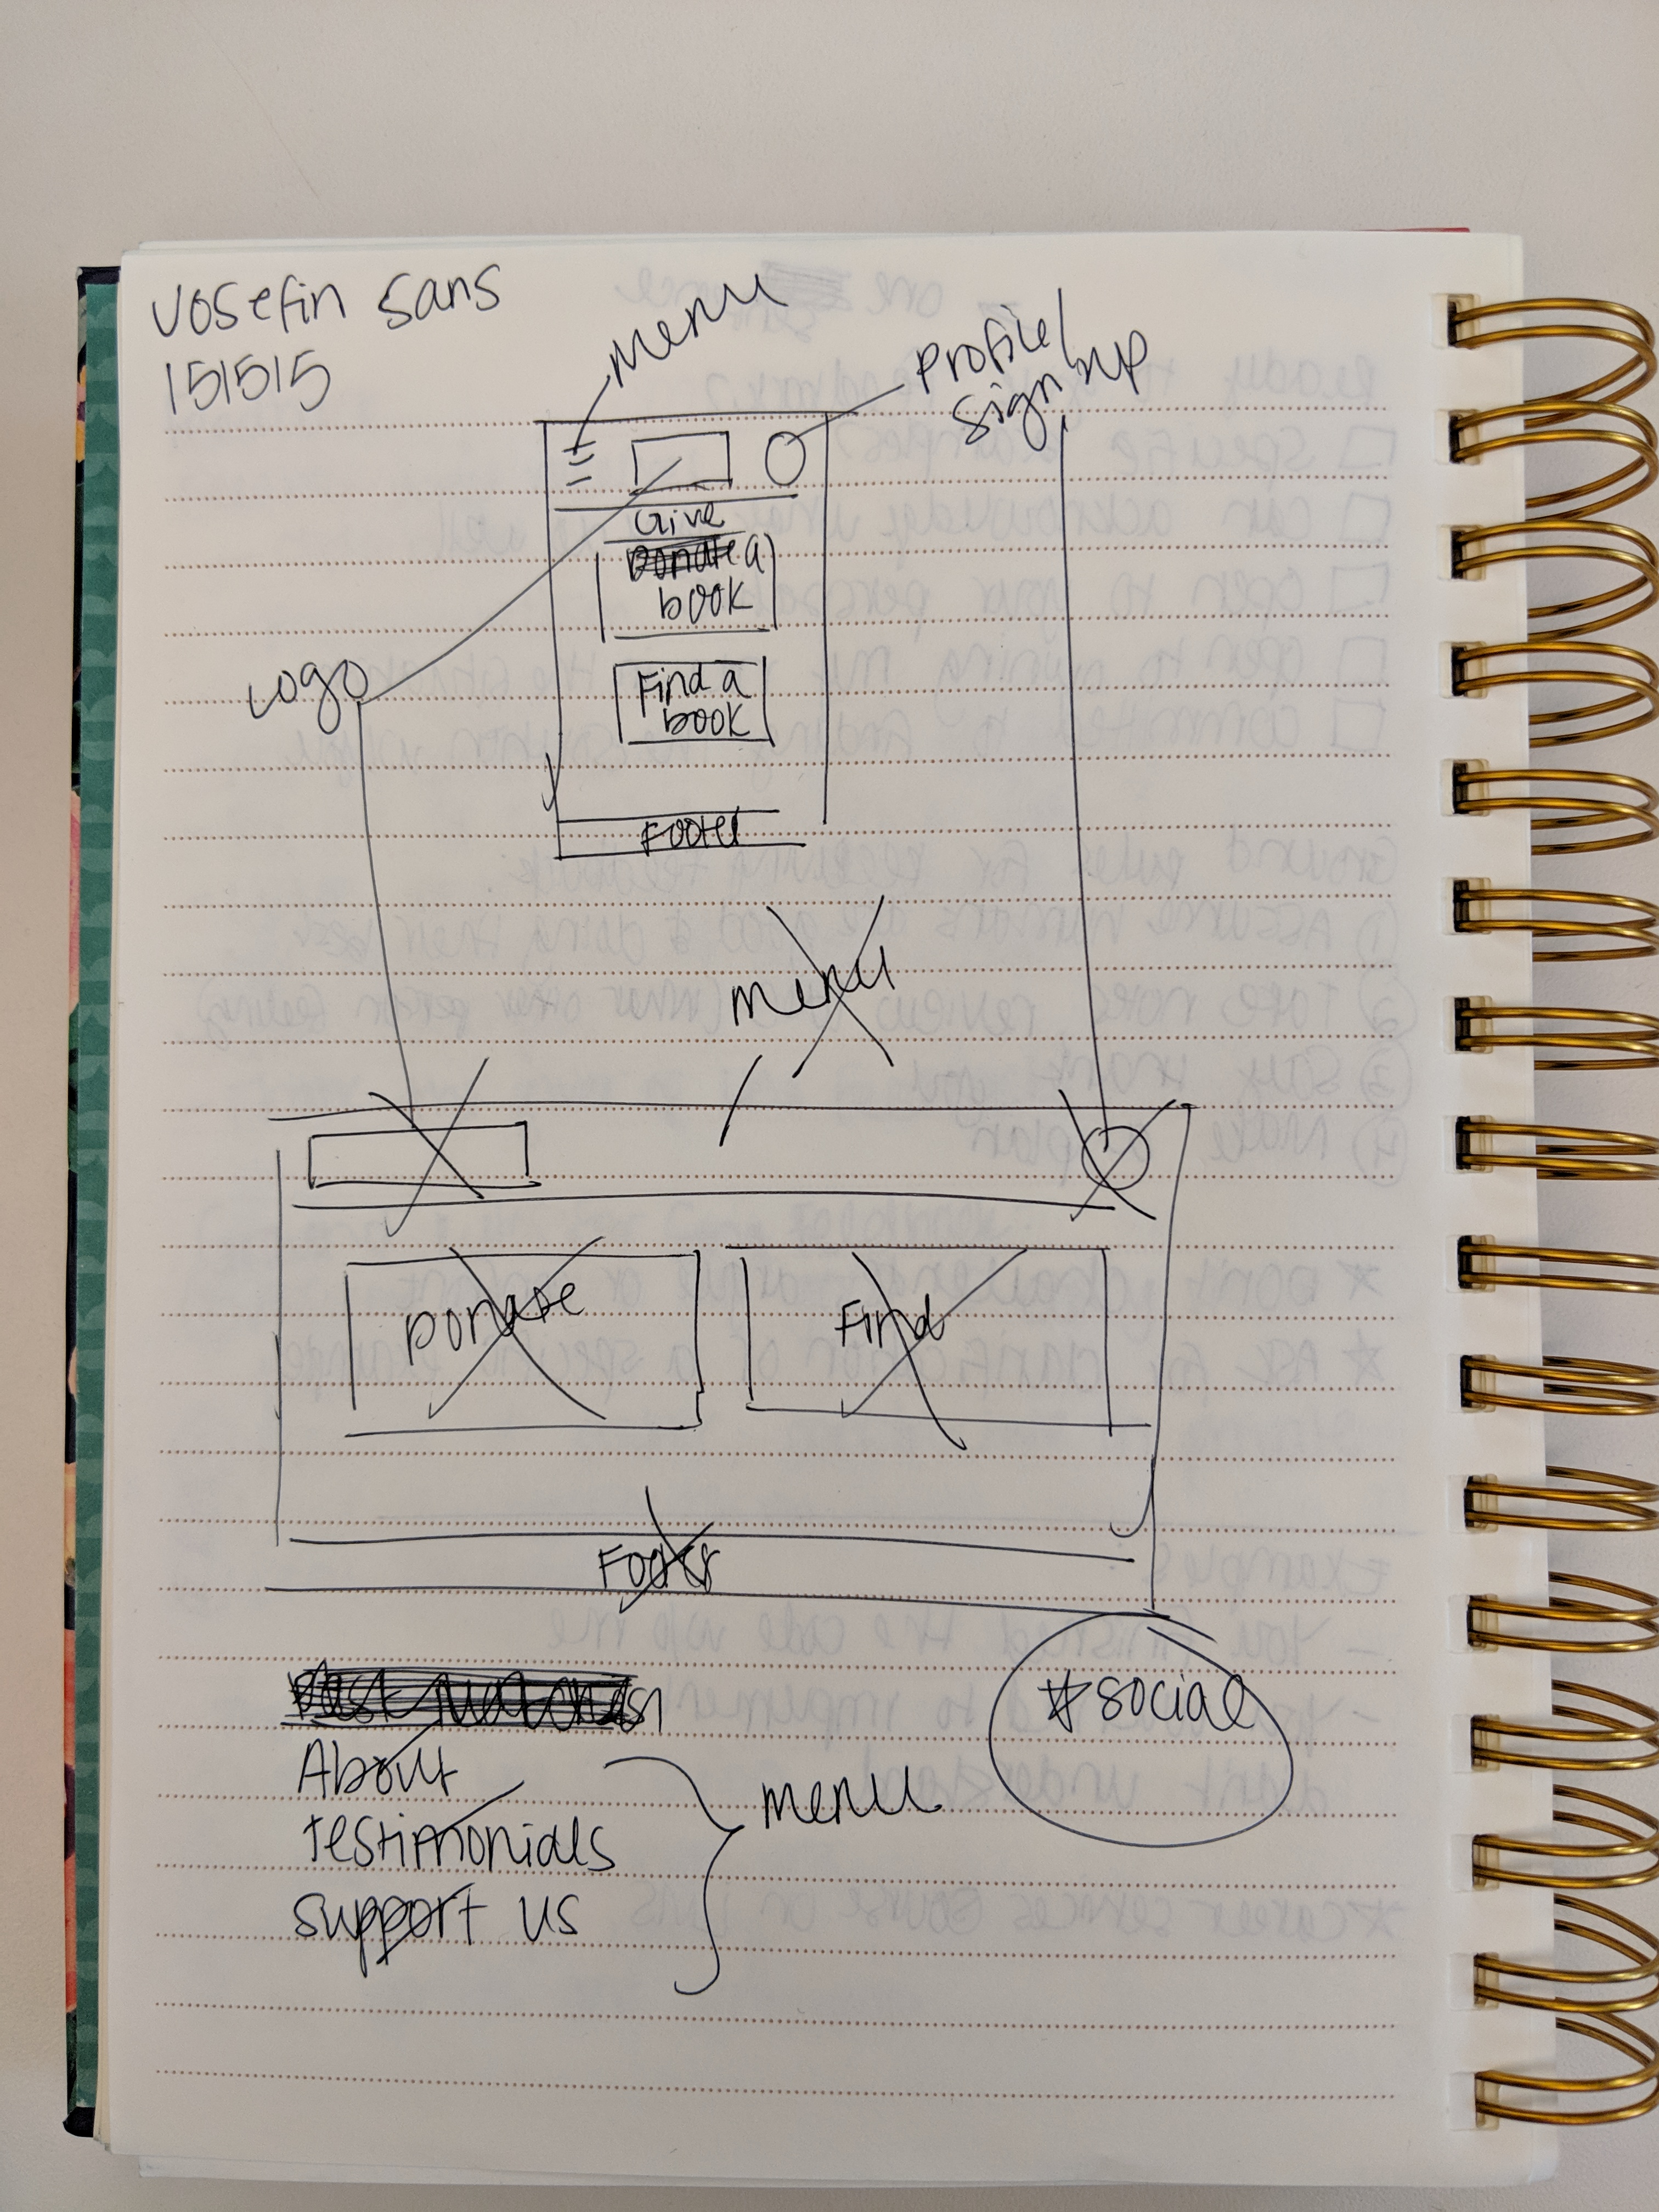 Josefin Sans
151515
Menu
Profile/
sign up
Give
Donate a
book
Logo
Find a
book
Footer
Menu
Donate
Find
Footer
#social
About
Testimonials
Support us
menu